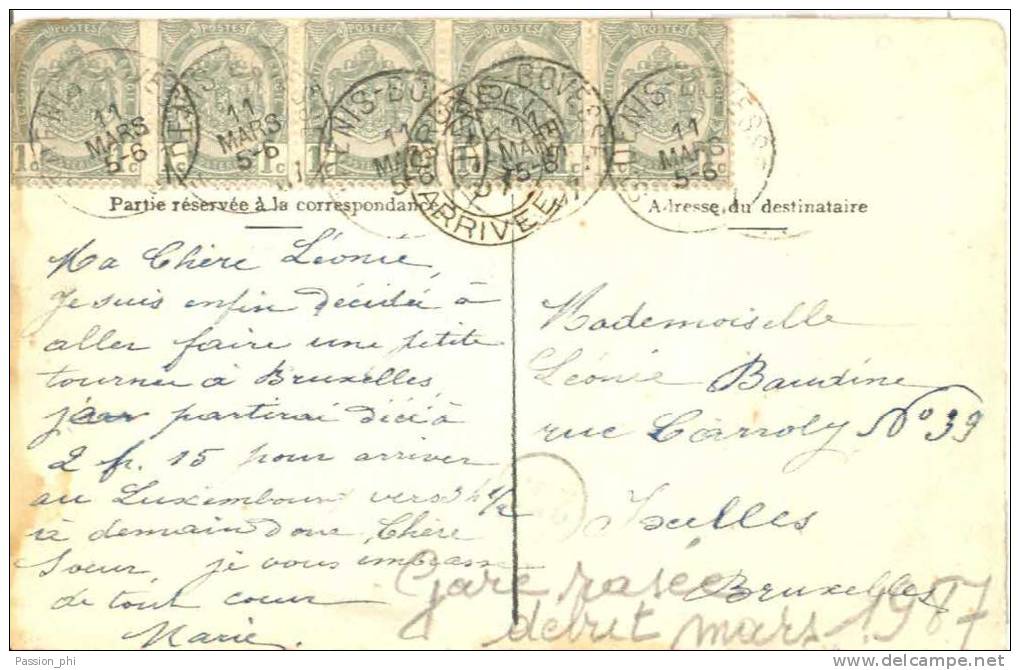 POSTES POSTES POSTES POSTES POSTES
1c 1c 1c 1c 1c
11 MARS 5-6
11 MARS 5-6
11 MARS 5-6
11 MARS 5-6
11 MARS 5-6
ARRIVEE
Partie réservée à la correspondance
Adresse du destinataire
Ma Chère Léonie,
Je suis enfin décidée à
aller faire une petite
tournée à Bruxelles,
partirai d'ici à
2 h. 15 pour arriver
au Luxembourg vers 3 h 1/2
à demain donc, Chère
Soeur, je vous embrasse
de tout coeur
Marie.
Mademoiselle
Léonie Baudine
rue Carroly No 39
Ixelles
Bruxelles
Gare rasée
début mars 1987
Passion_phi
delcampe.net